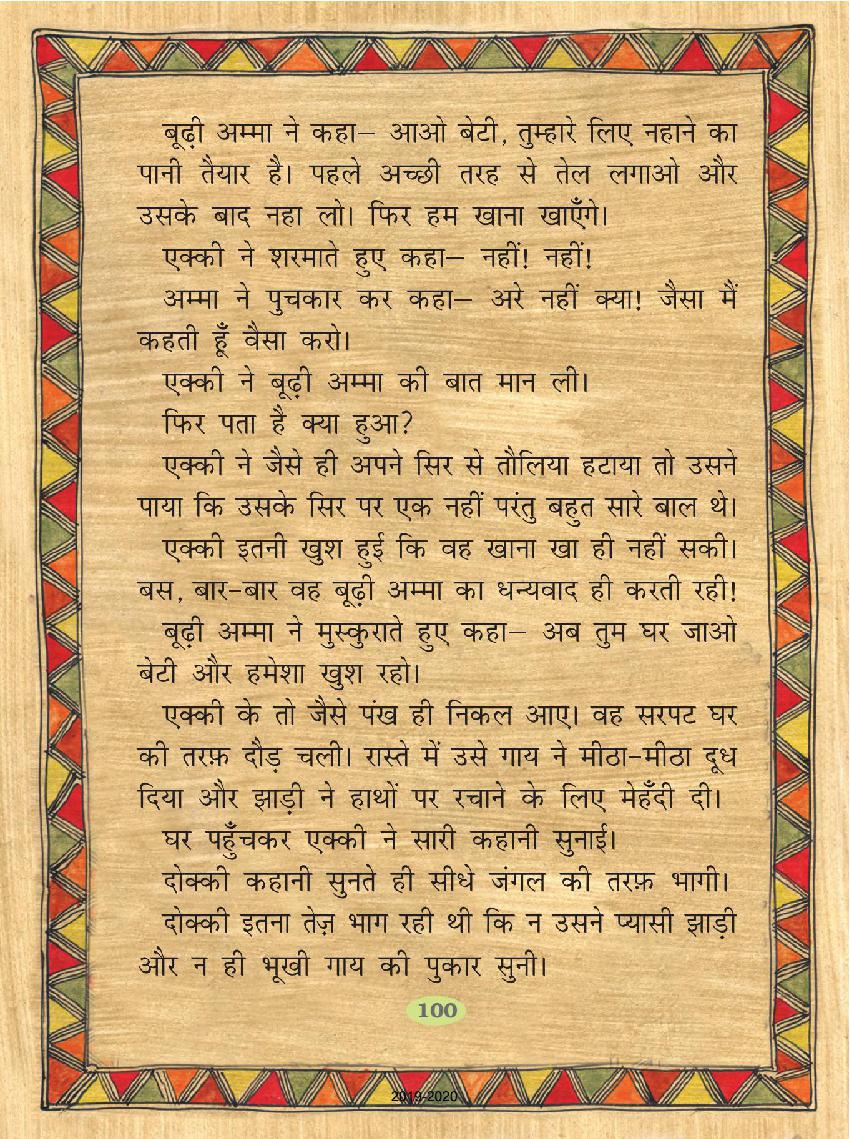 बूढ़ी अम्मा ने कहा– आओ बेटी, तुम्हारे लिए नहाने का
पानी तैयार है। पहले अच्छी तरह से तेल लगाओ और
उसके बाद नहा लो। फिर हम खाना खाएँगे।
एक्की ने शरमाते हुए कहा– नहीं! नहीं!
अम्मा ने पुचकार कर कहा– अरे नहीं क्या! जैसा मैं
कहती हूँ वैसा करो।
एक्की ने बूढ़ी अम्मा की बात मान ली।
फिर पता है क्या हुआ?
एक्की ने जैसे ही अपने सिर से तौलिया हटाया तो उसने
पाया कि उसके सिर पर एक नहीं परंतु बहुत सारे बाल थे।
एक्की इतनी खुश हुई कि वह खाना खा ही नहीं सकी।
बस, बार-बार वह बूढ़ी अम्मा का धन्यवाद ही करती रही!
बूढ़ी अम्मा ने मुस्कुराते हुए कहा– अब तुम घर जाओ
बेटी और हमेशा खुश रहो।
एक्की के तो जैसे पंख ही निकल आए। वह सरपट घर
की तरफ़ दौड़ चली। रास्ते में उसे गाय ने मीठा-मीठा दूध
दिया और झाड़ी ने हाथों पर रचाने के लिए मेहँदी दी।
घर पहुँचकर एक्की ने सारी कहानी सुनाई।
दोक्की कहानी सुनते ही सीधे जंगल की तरफ़ भागी।
दोक्की इतना तेज़ भाग रही थी कि न उसने प्यासी झाड़ी
और न ही भूखी गाय की पुकार सुनी।
100
2019-2020